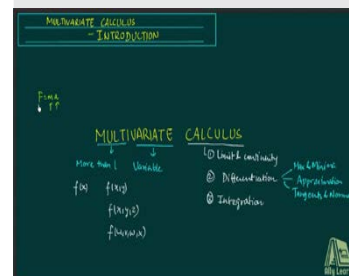 MULTIVARIATE CALCULUS
- INTRODUCTION
F=ma
↑↑
MULTIVARIATE CALCULUS
More than 1 Variable
f(x) f(x,y)
f(x,y,z)
① Limit & continuity
② Differentiation
Max & Minima
Approximation
Tangents &
③ Integration